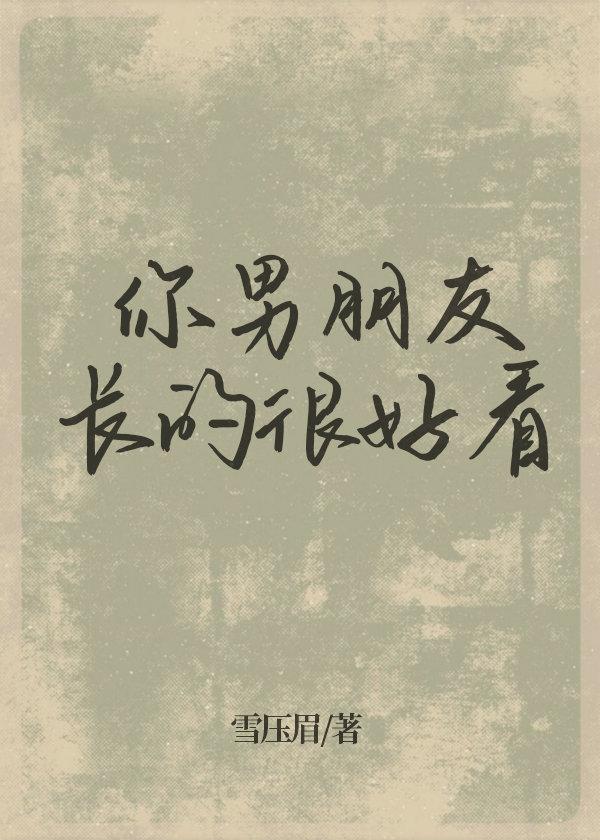 你男朋友
长的很好看
雪压眉/著